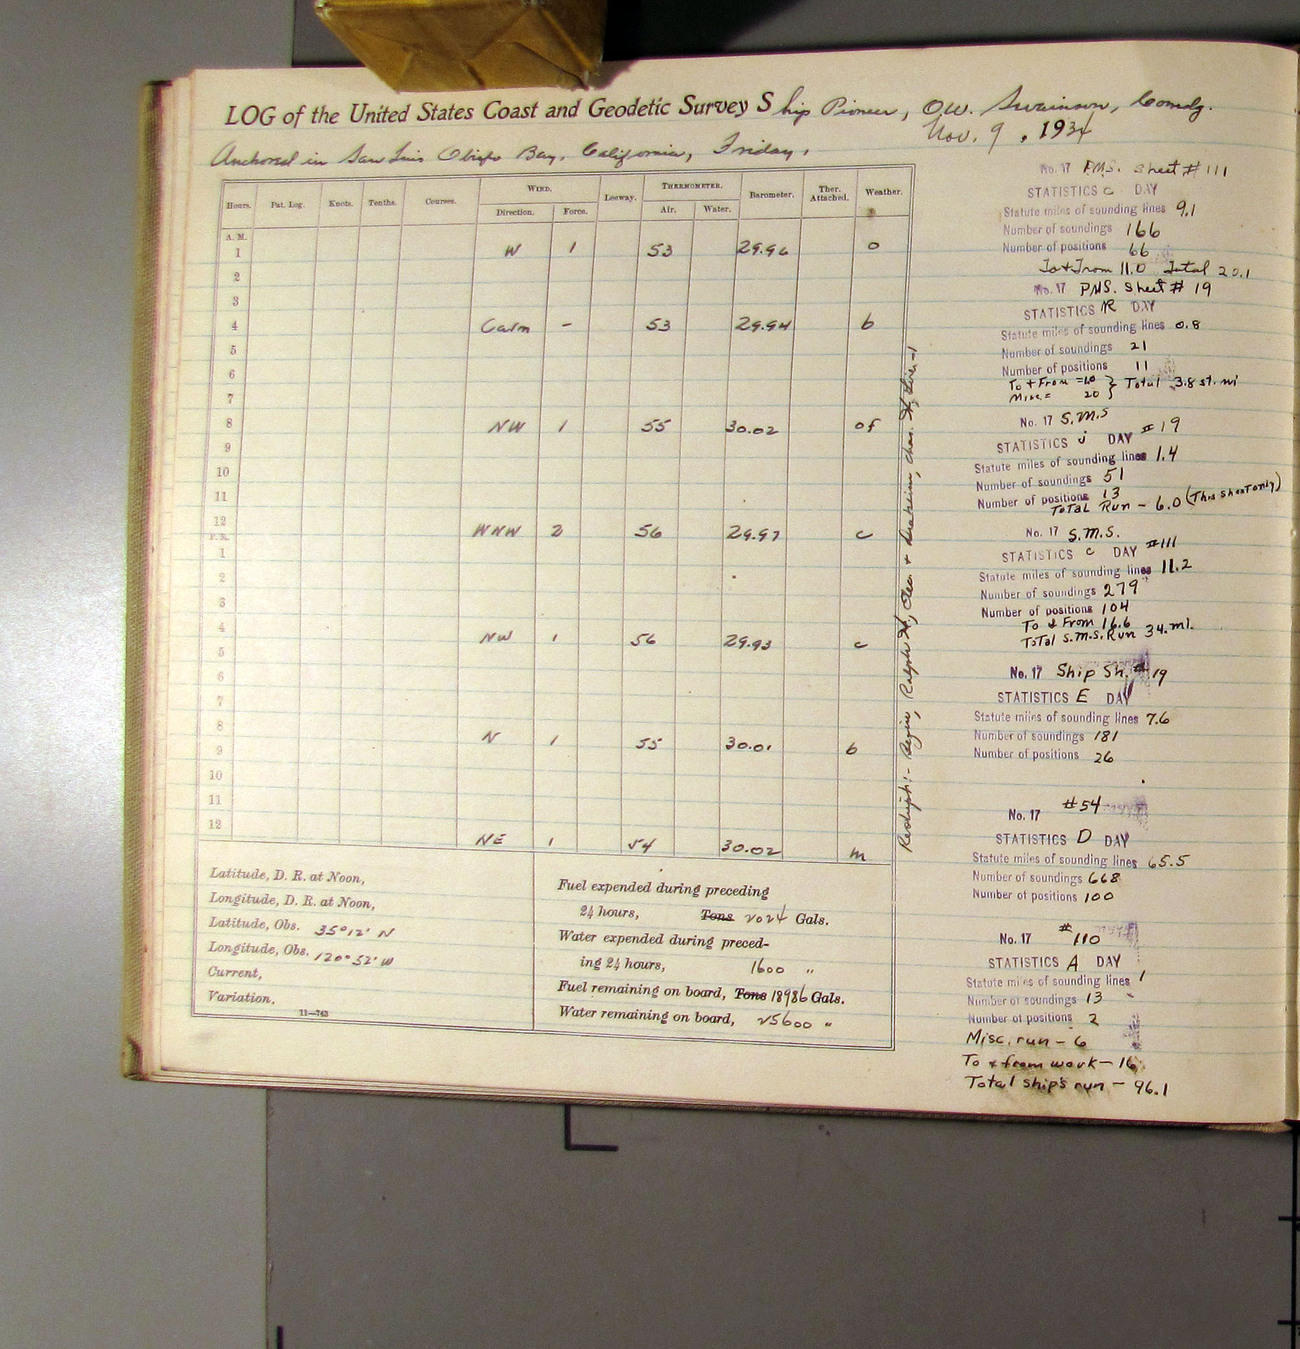 LOG of the United States Coast and Geodetic Survey Ship Pioneer, O.W. Swainson, Comdg.
Nov. 9, 1934
Anchored in San Luis Obispo Bay, California, Friday,
Hours. Pat. Log. Knots. Tenths. Courses. WIND. Leeway. THERMOMETER. Barometer. Ther. Attached. Weather.
Direction. Force. Air. Water.
A. M.
1 W 1 53 29.96 o
2
3
4 Calm - 53 29.94 b
5
6
7
8 NW 1 55 30.02 of
9
10
11
12 WNW 2 56 29.97 c
P. M.
1
2
3
4 NW 1 56 29.93 c
5
6
7
8 N 1 55 30.01 b
9
10
11
12
NE 1 54 30.02 m
Latitude, D. R. at Noon,
Longitude, D. R. at Noon,
Latitude, Obs. 35°12' N
Longitude, Obs. 120°52' W
Current,
Variation,
11—743
Fuel expended during preceding
24 hours, Tons 2024 Gals.
Water expended during preced-
ing 24 hours, 1600 "
Fuel remaining on board, Tons 18986 Gals.
Water remaining on board, 25600 "
Ralph H,
No. 17 P.M.S. Sheet #111
STATISTICS C DAY
Statute miles of sounding lines 9.1
Number of soundings 166
Number of positions 66
To & From 11.0 Total 20.1
No. 17 P.M.S. Sheet #19
STATISTICS R DAY
Statute miles of sounding lines 0.8
Number of soundings 21
Number of positions 11
To & From = 1.0 } Total 3.8 st. mi
Misc = 2.0
No. 17 S.M.S
#19
STATISTICS j DAY
Statute miles of sounding lines 1.4
Number of soundings 51
Number of positions 13
Total Run - 6.0 (This sheet only)
No. 17 S.M.S.
STATISTICS C DAY #111
Statute miles of sounding lines 11.2
Number of soundings 279
Number of positions 104
To & From 16.6
Total S.M.S. Run 34. mi.
No. 17 Ship Sh. #19
STATISTICS E DAY
Statute miles of sounding lines 7.6
Number of soundings 181
Number of positions 26
No. 17 #54
STATISTICS D DAY
Statute miles of sounding lines 65.5
Number of soundings 668
Number of positions 100
No. 17 #110
STATISTICS A DAY
Statute miles of sounding lines 1
Number of soundings 13
Number of positions 2
Misc. run - 6
To & from work - 16
Total ship's run - 96.1